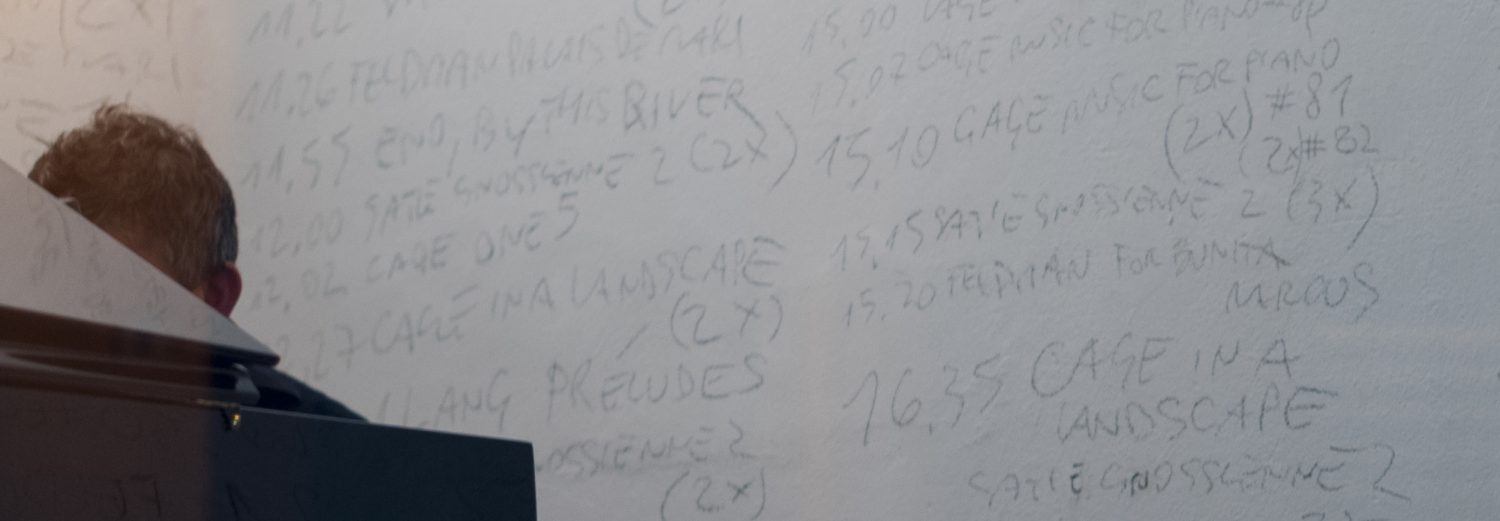 (2X)
11,22
11,26 FELDMAN PALAIS DE MARI
11,55 ENO, BY THIS RIVER
12,00 SATIE GNOSSIENNE 2 (2X)
12,02 CAGE ONE 5
,27 CAGE IN A LANDSCAPE
(2X)
LANG PRELUDES
OSSIENNE 2
(2X)
15,00 CAGE
15,07 CAGE MUSIC FOR PIANO
15,10 CAGE MUSIC FOR PIANO
(2X) #81
(2X) #82
15,15 SATIE GNOSSIENNE 2 (3X)
15,20 FELDMAN FOR BUNITA
MRCUS
16,35 CAGE IN A
LANDSCAPE
SATIE GNOSSIENNE 2